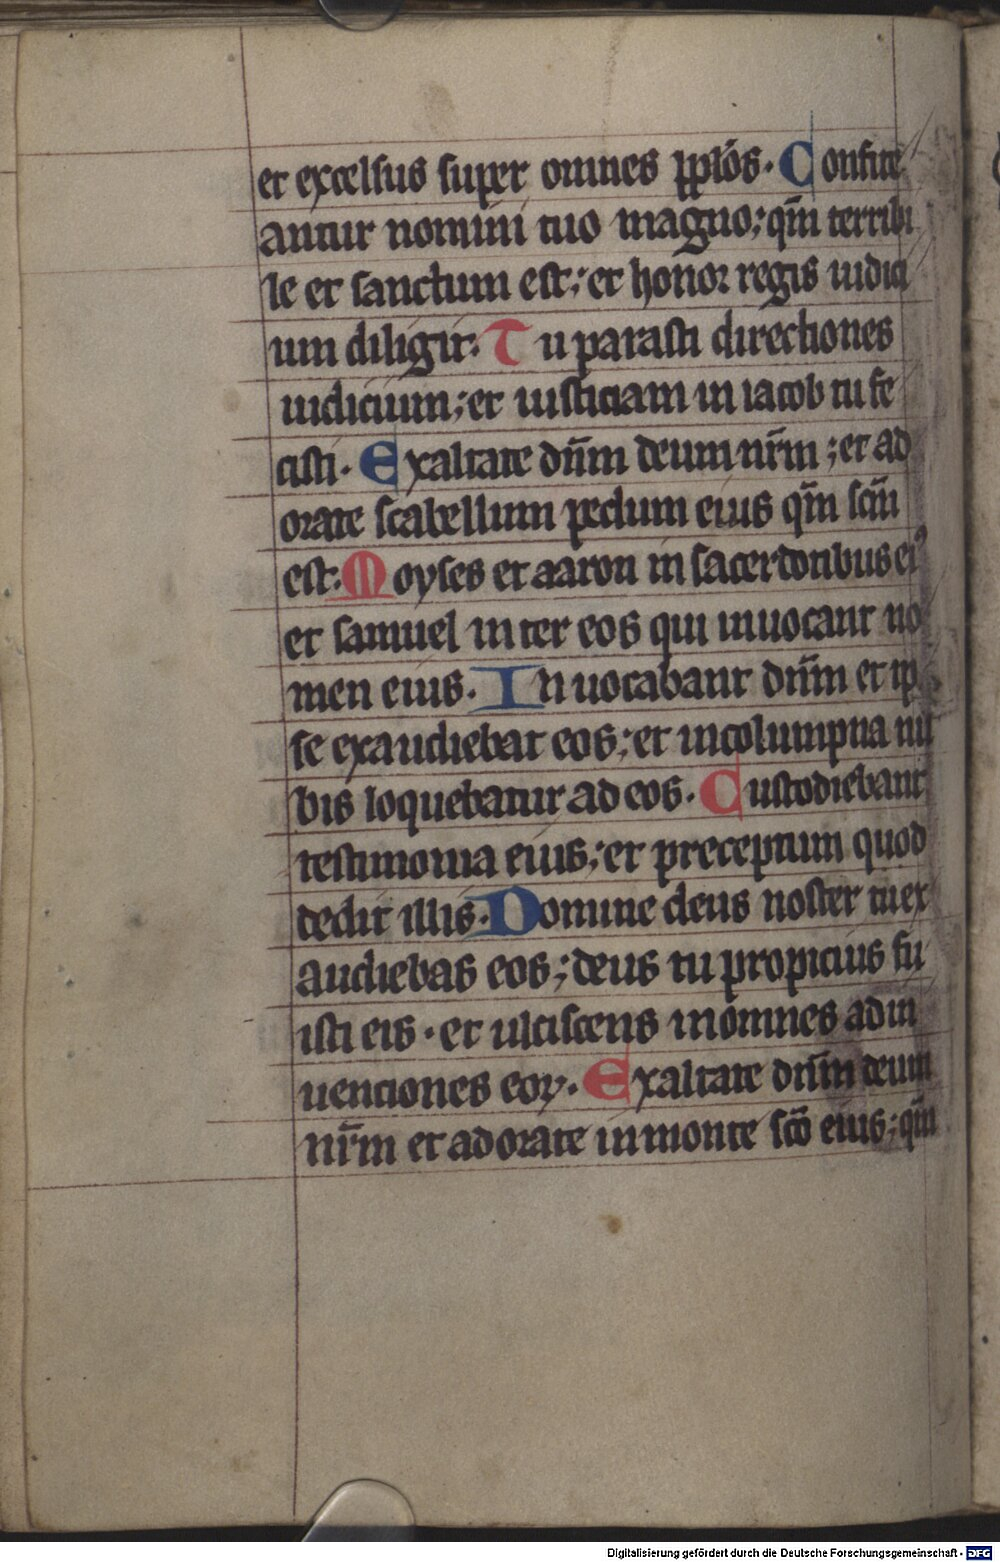 et excelsus super omnes pp̄lōs. Confite
antur nomini tuo magno; qm̄ terribi
le et sanctum est; et honor regis iudici
um diligit. Tu parasti directiones
iudicium; et iusticiam in iacob tu fe
cisti. Exaltate dn̄m deum nr̄m; et ad
orate scabellum pedum eius qm̄ scm̄
est. Moyses et aaron in sacerdotibus eiꝰ
et samuel inter eos qui inuocant no
men eius. Inuocabant dn̄m et ip
se exaudiebat eos; et incolumpna nu
bis loquebatur ad eos. Custodiebant
testimonia eius; et preceptum quod
dedit illis. Domine deus noster tu ex
audiebas eos; deus tu propicius fu
isti eis. et ulciscens in omnes ad in
uentiones eoꝝ. Exaltate dn̄m deum
nr̄m et adorate in monte sc̄o eius; qm̄
Digitalisierung gefördert durch die Deutsche Forschungsgemeinschaft - DFG